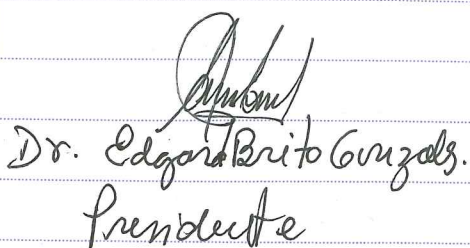 Dr. Edgard Brito Gonzales.
Presidente